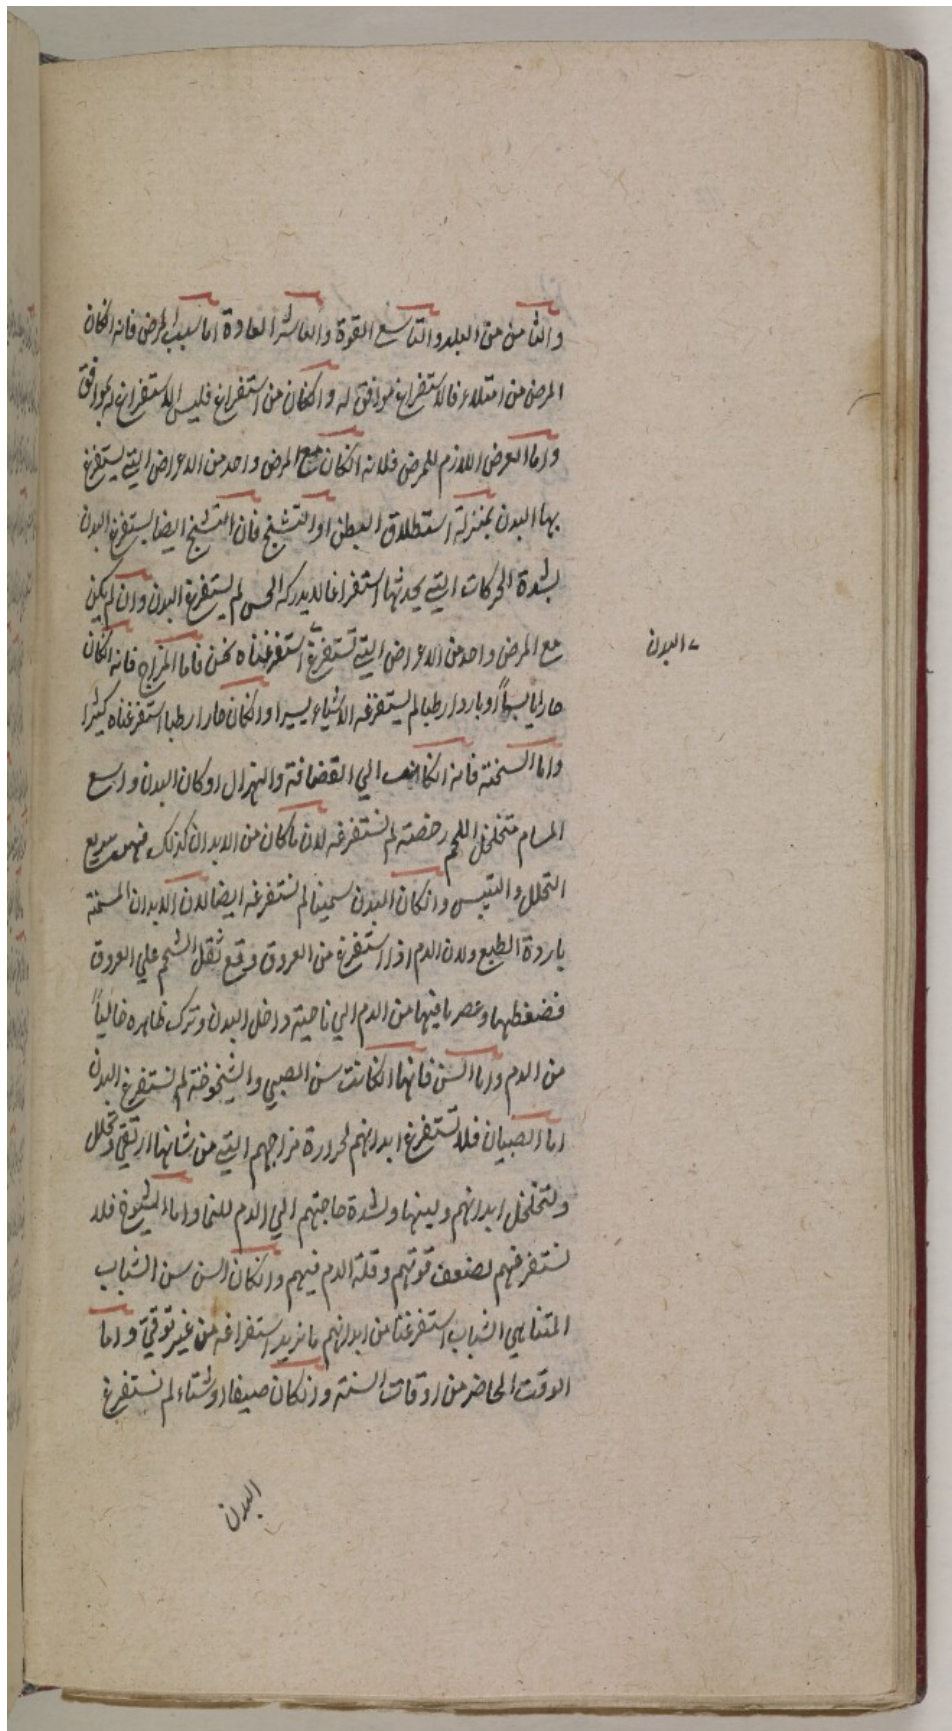 والثامن من البلد والتاسع القوة والعاشر العادة اما سبب المرض فانه انكان
المرض من امتلاء فالاستفراغ موافق له وانكان من استفراغ فليس الاستفراغ له بموافق
واما العرض اللازم للمرض فلانه انكان مع المرض واحد من الاعراض التي يستفرغ
بها البدن بمنزلة استطلاق البطن او التشنج فان التشنج ايضا يستفرغ البدن
لشدة الحركات التي يحدثها استفراغا لا يدركه الحس لم يستفرغ البدن وان لم يكن
مع المرض واحد من الاعراض التي تستفرغ استفرغناه نحن فاما المزاج فانه انكان
البدن
حارا يابسا او باردا رطبا لم يستفرغه الا شياء يسيرا وانكان حارا رطبا استفرغناه كثيرا
واما السحنة فانه انكانت الي القضافة والهزال او كان البدن واسع
المسام متخلخل اللحم رخصته لم نستفرغه لان ما كان من الابدان كذلك فهو سريع
التحلل واليبس وانكان البدن سمينا لم نستفرغه ايضا لان الابدان السمينة
باردة الطبع ولان الدم اذا استفرغ من العروق وقع ثقل الشحم علي العروق
فضغطها وعصر ما فيها من الدم الي ناحية داخل البدن وترك ظاهره خاليا
من الدم واما السن فانها انكانت سن الصبي والشيخوخة لم نستفرغ البدن
اما الصبيان فلا تستفرغ ابدانهم لحرارة مزاجهم التي من شانها ان تفني وتحلل
ولتخلخل ابدانهم ولينها ولشدة حاجتهم الي الدم للنما واما الشيوخ فلا
نستفرغهم لضعف قوتهم وقلة الدم فيهم وانكان السن سن الشباب
المتناهي الشباب استفرغنا من ابدانهم ما نريد استفراغه من غير توقي واما
الوقت الحاضر من اوقات السنة وانكان صيفا او شتاء لم نستفرغ
البدن